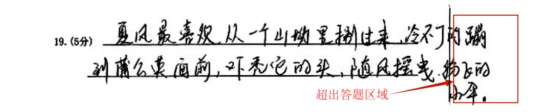 19.(5分) 夏风最喜欢从一个山坳里拥过来,冷不丁的蹦
到蒲公英面前,吓秃它的头,随风摇曳,的
小伞。
超出答题区域